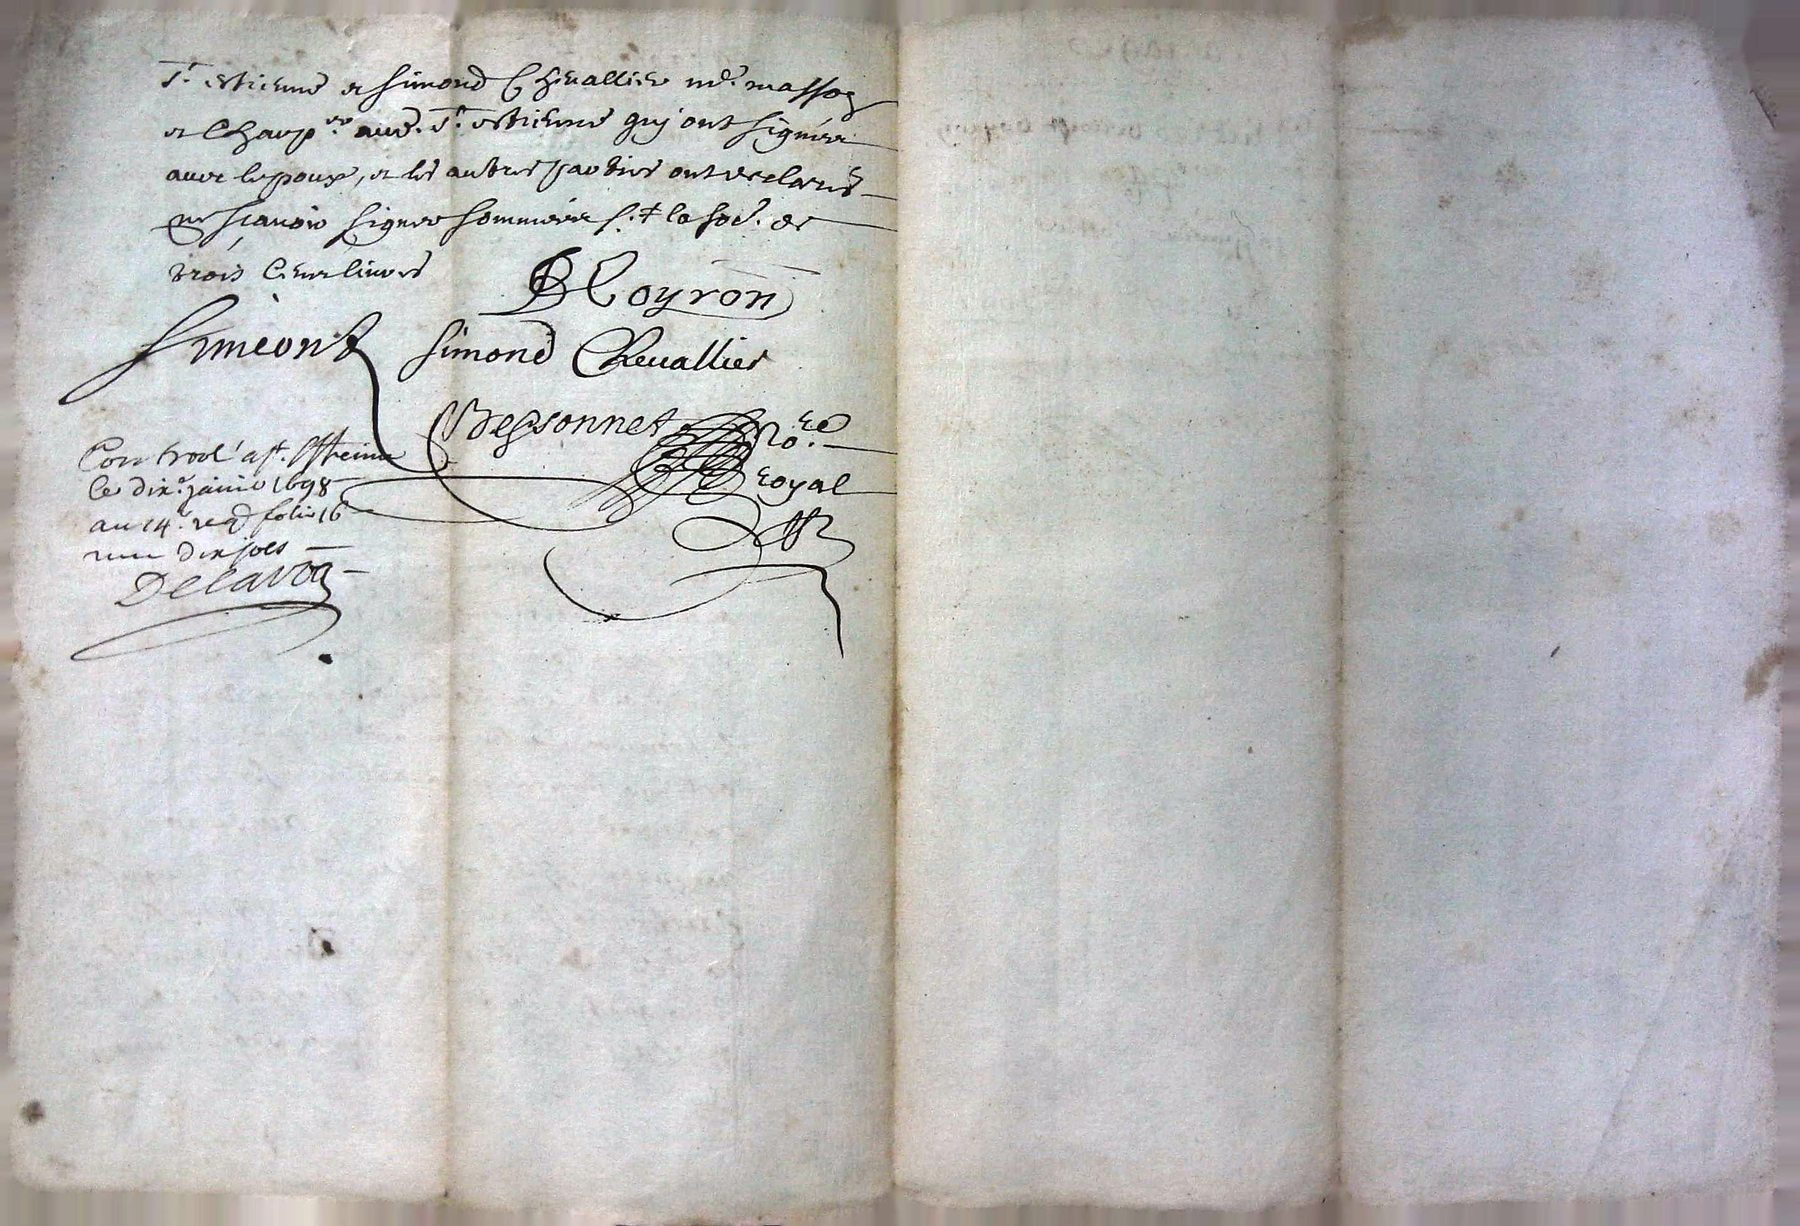 St. estienne et Simond Chevallier me. masson
et Charp.er aud. St. estienne quj ont signéz
avec lepoux, et les autres parties ont declaré
ne scavoir signer sommées la sod. de
trois Cent livres
B Coyron
Simeont Simond Chevallier
Bessonnet No.re
royal
Controol' a st. Estienne
le dix.e janvie 1698
au 14.e reg folio 16
receu dix sols
Delavoa